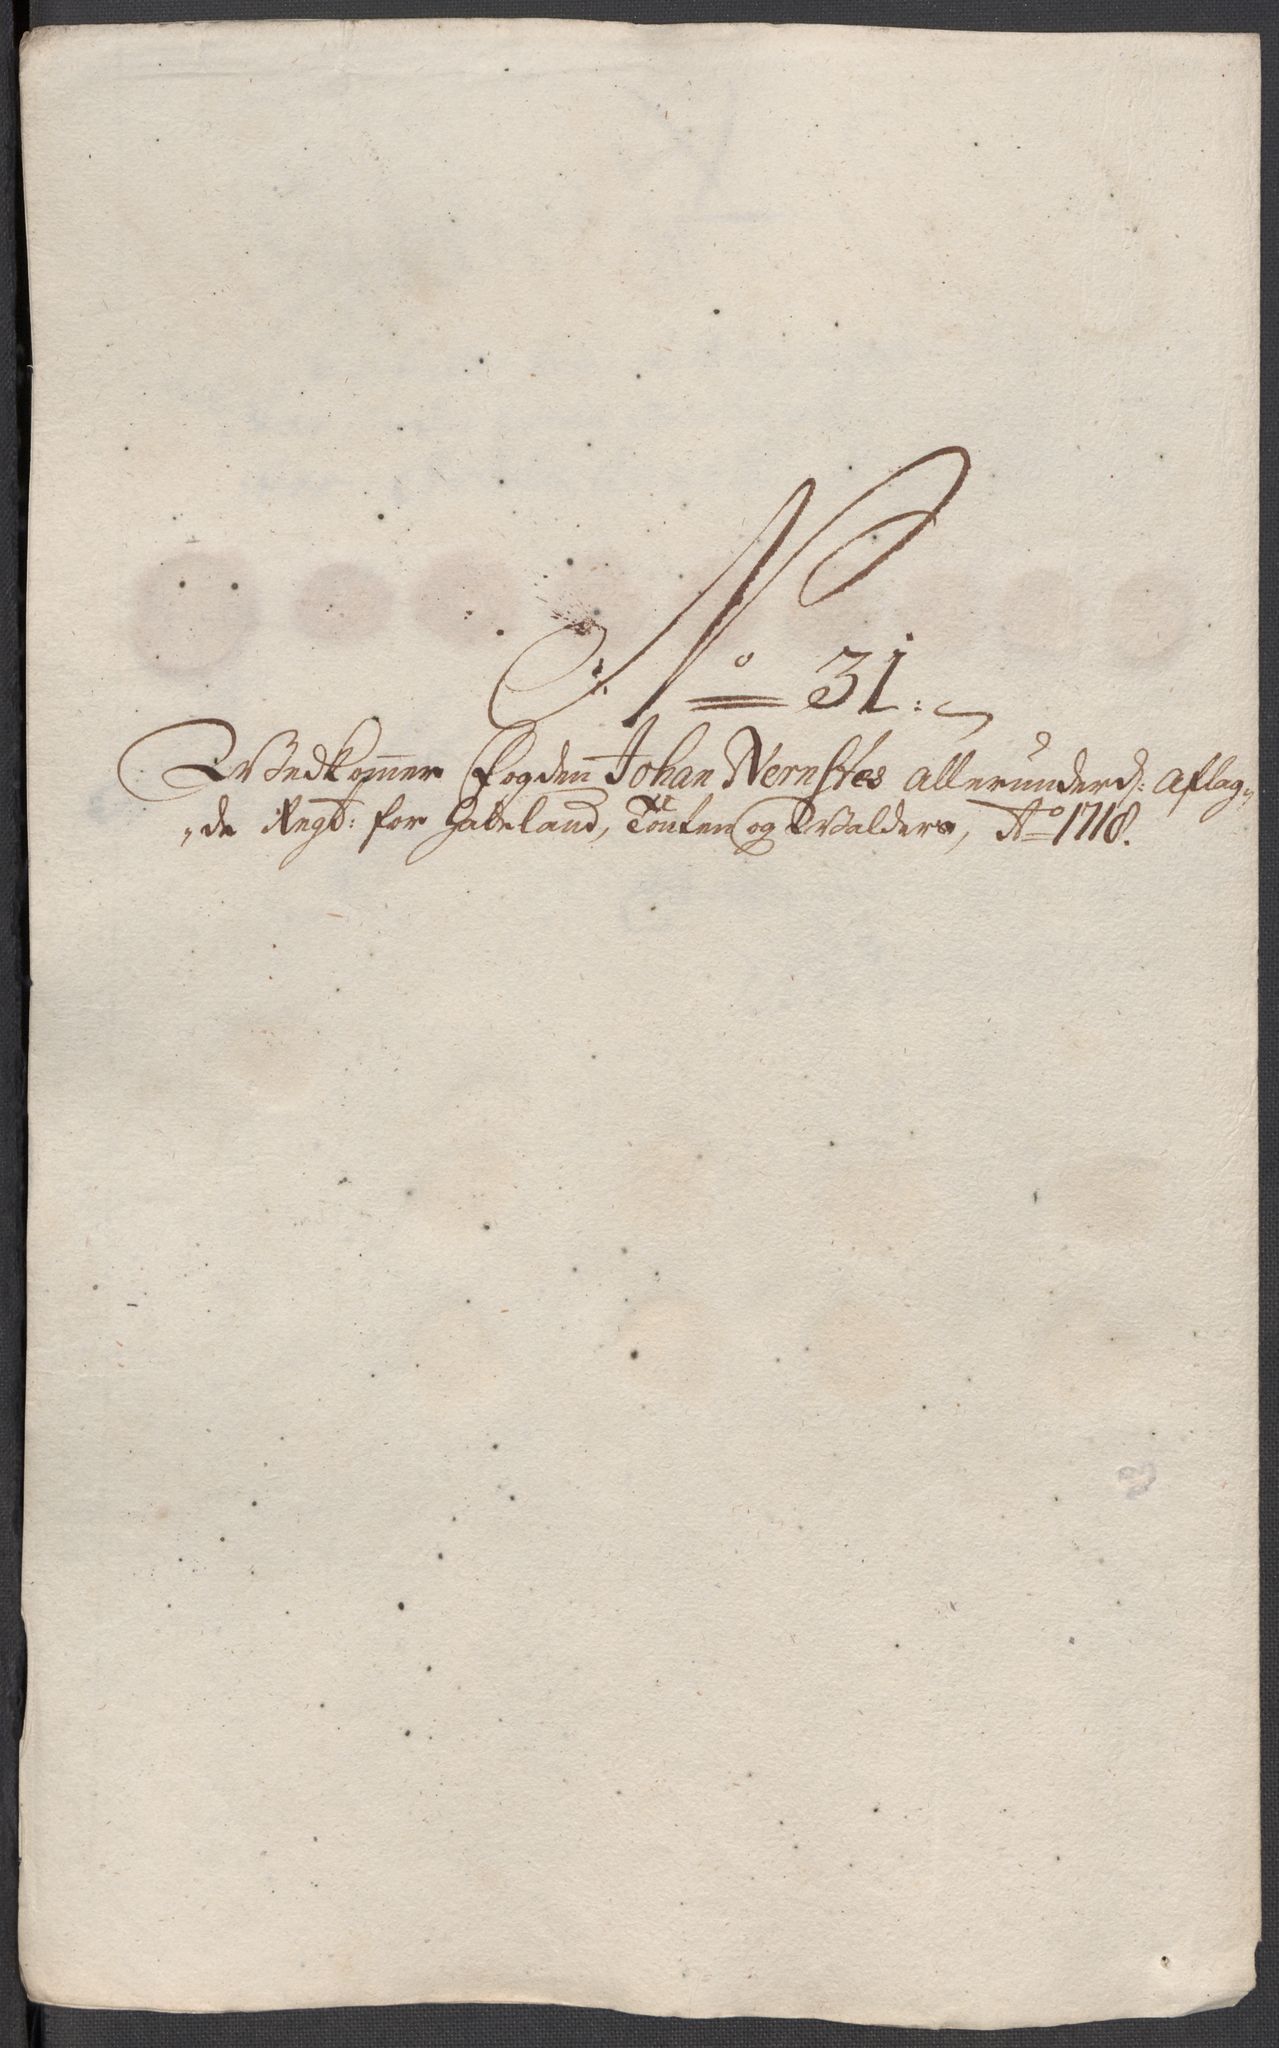 No 31.
Wedkom̄er Fogden Johan Nernstes allerunderd: aflag„
„de Regb: for Hadeland, Toten og Walders, Ao 1718.